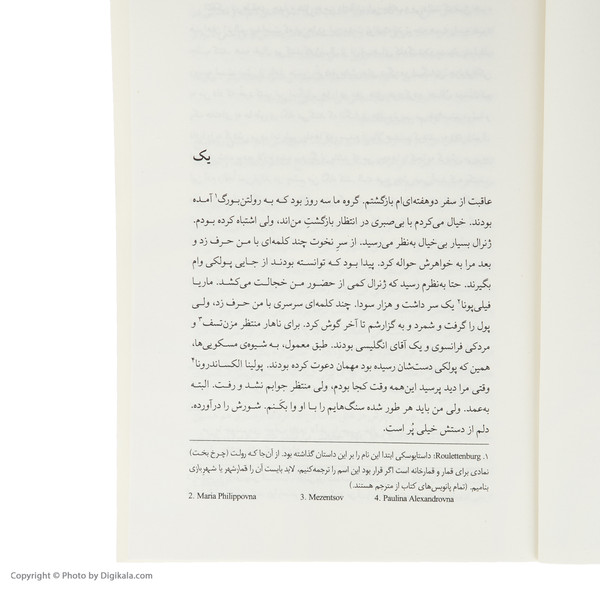 یک
عاقبت از سفر دوهفته‌ای‌ام بازگشتم. گروه ما سه روز بود که به رولتن‌بورگ۱ آمده
بودند. خیال می‌کردم با بی‌صبری در انتظار بازگشتِ من‌اند، ولی اشتباه کرده بودم.
ژنرال بسیار بی‌خیال به‌نظر می‌رسید. از سرِ نخوت چند کلمه‌ای با من حرف زد و
بعد مرا به خواهرش حواله کرد. پیدا بود که توانسته بودند از جایی پولکی وام
بگیرند. حتا به‌نظرم رسید که ژنرال کمی از حضور من خجالت می‌کشد. ماریا
فیلی‌پونا۲ یک سر داشت و هزار سودا. چند کلمه‌ای سرسری با من حرف زد، ولی
پول را گرفت و شمرد و به گزارشم تا آخر گوش کرد. برای ناهار منتظر مزن‌تسف۳ و
مردکی فرانسوی و یک آقای انگلیسی بودند. طبق معمول، به شیوه‌ی مسکویی‌ها،
همین که پولکی دست‌شان رسیده بود مهمان دعوت کرده بودند. پولینا الکساندرونا۴
وقتی مرا دید پرسید این‌همه وقت کجا بودم، ولی منتظر جوابم نشد و رفت. البته
به‌عمد. ولی من باید هر طور شده سنگ‌هایم را با او وا بکَنم. شورش را درآورده.
دلم از دستش خیلی پُر است.
۱. Roulettenburg: داستایوسکی ابتدا این نام را بر این داستان گذاشته بود. از آن‌جا که رولت (چرخ بخت)
نمادی برای قمار و قمارخانه است اگر قرار بود این اسم را ترجمه کنیم، لابد بایست آن را قمارشهر یا شهرِ بازی
بنامیم. (تمام پانویس‌های کتاب از مترجم هستند.)
2. Maria Philippovna 3. Mezentsov 4. Paulina Alexandrovna
Copyright © Photo by Digikala.com